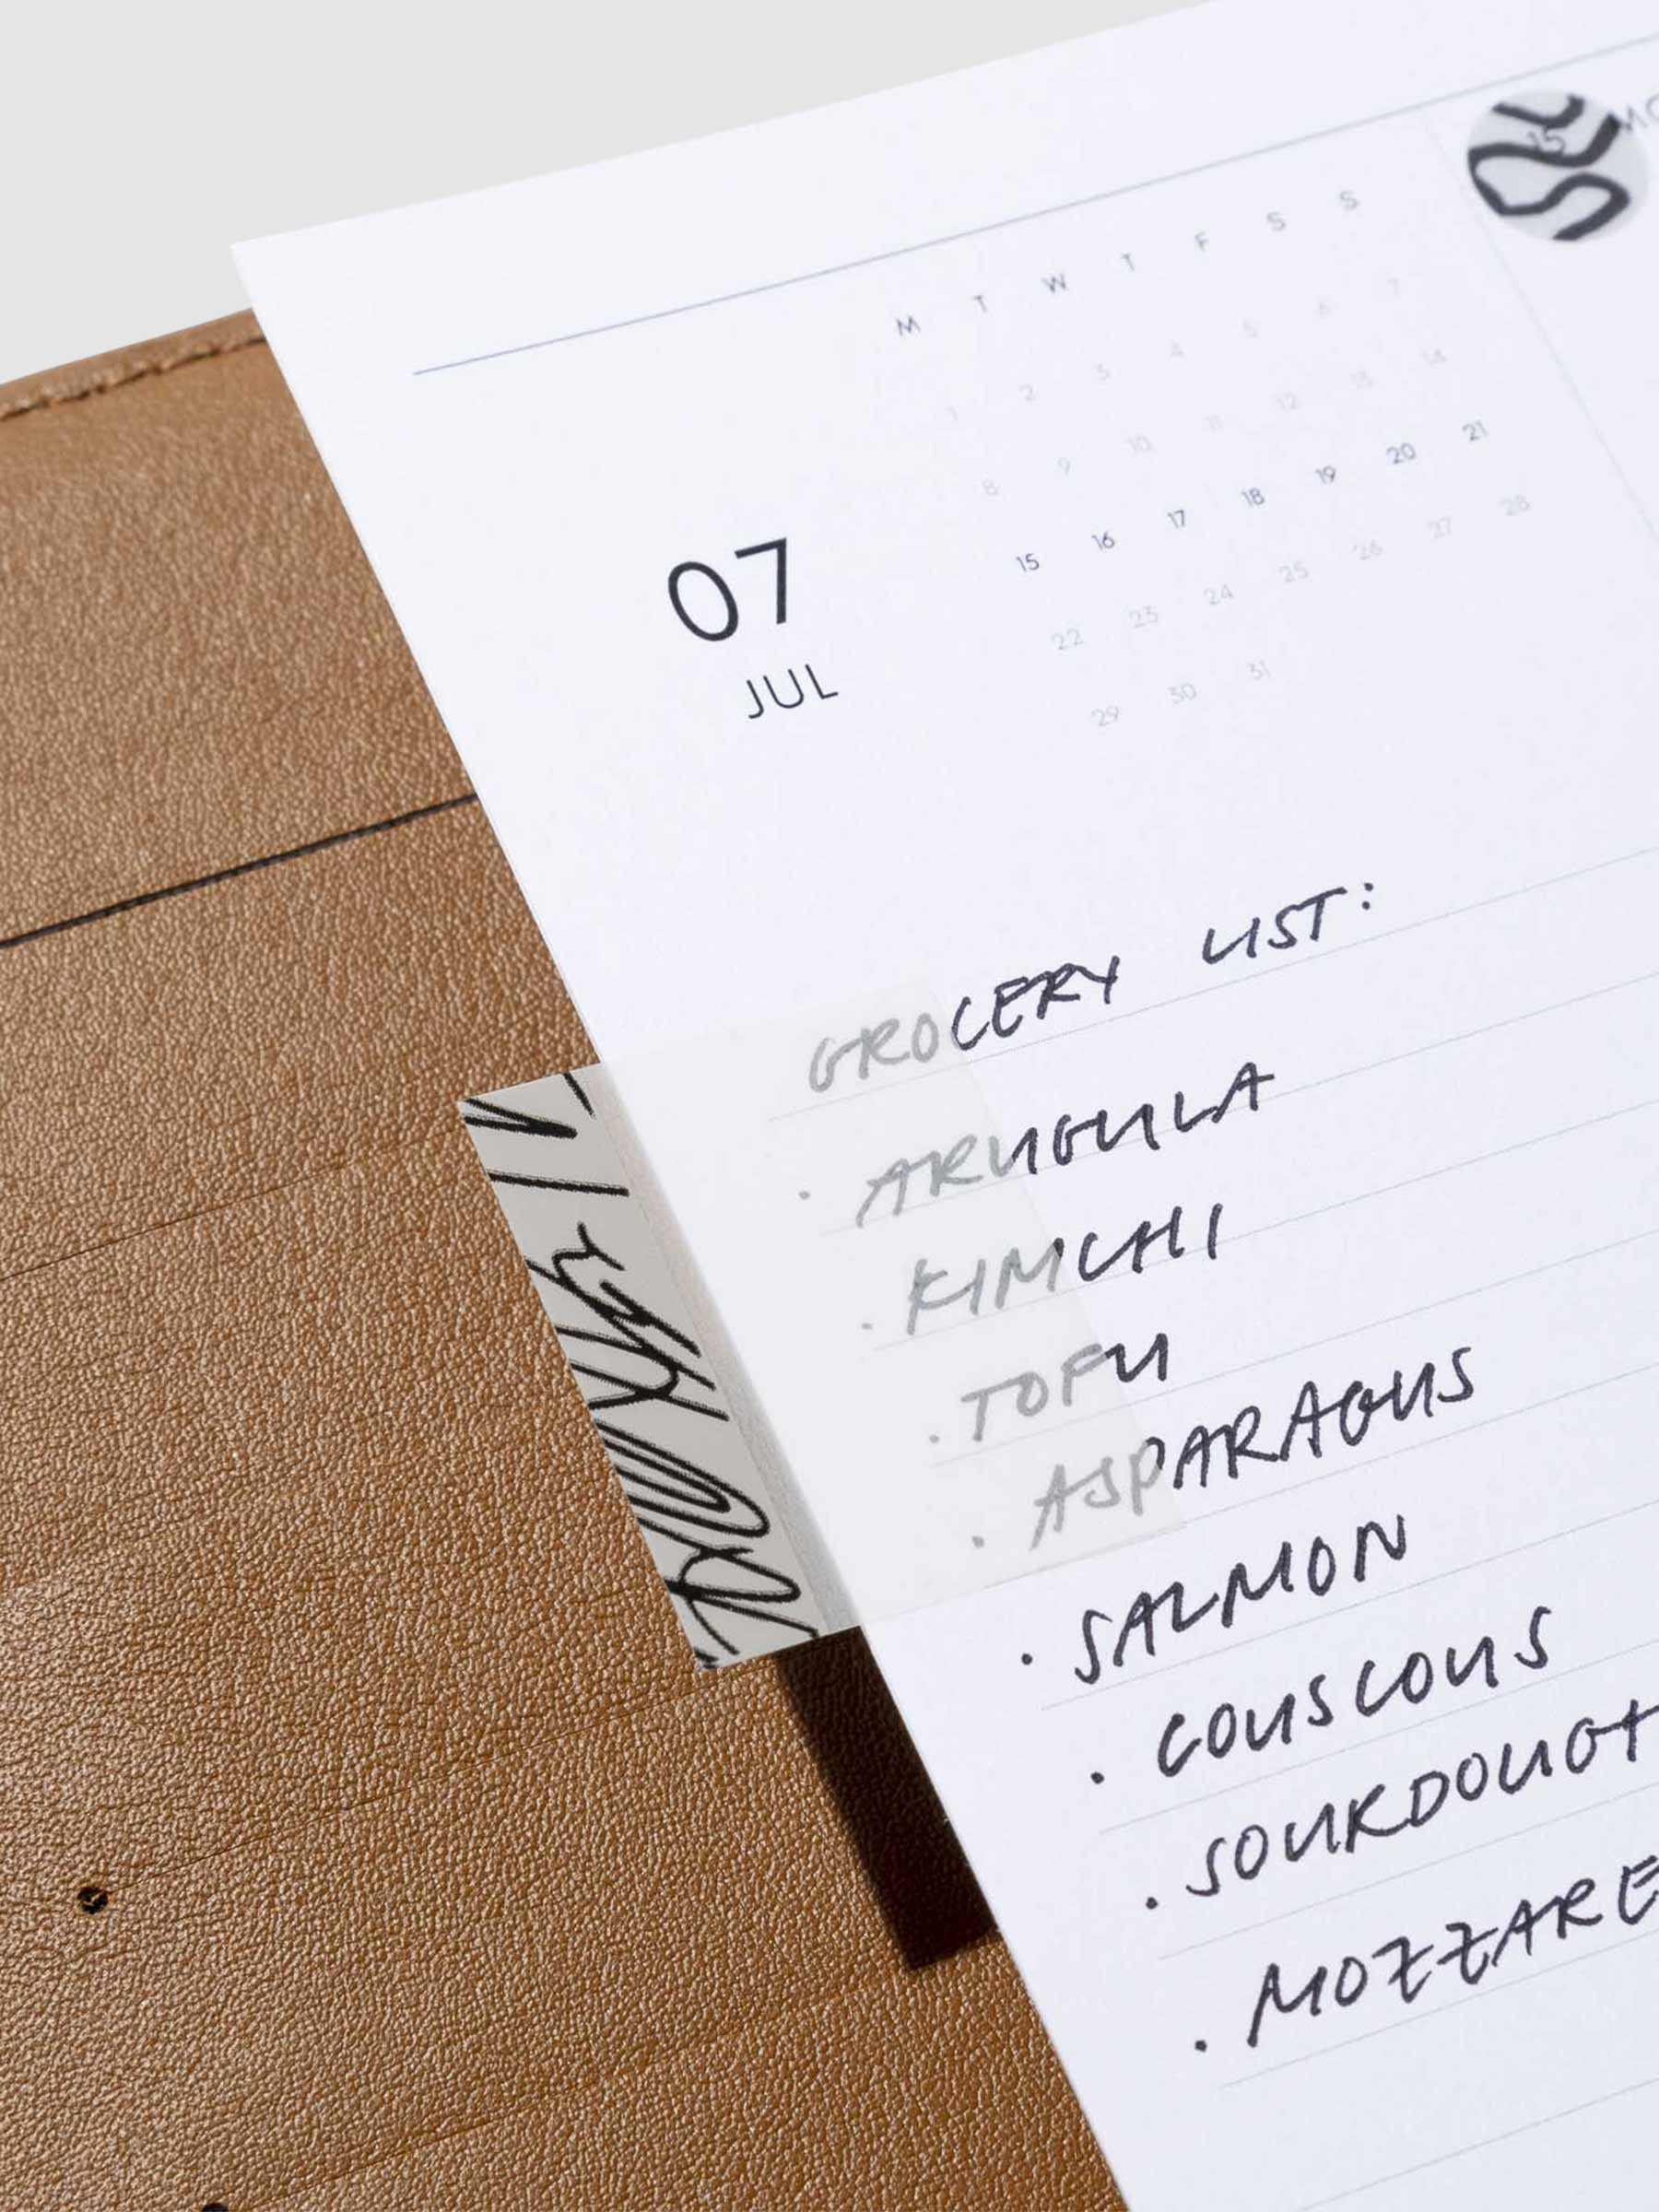 M T W T F S S
1 2 3 4 5 6 7
8 9 10 11 12 13 14
15 16 17 18 19 20 21
22 23 24 25 26 27 28
29 30 31
07
JUL
15 MO
GROCERY LIST:
· ARUGULA
· KIMCHI
· TOFU
· ASPARAGUS
· SALMON
· COUSCOUS
· SOURDOUGH
· MOZZARE